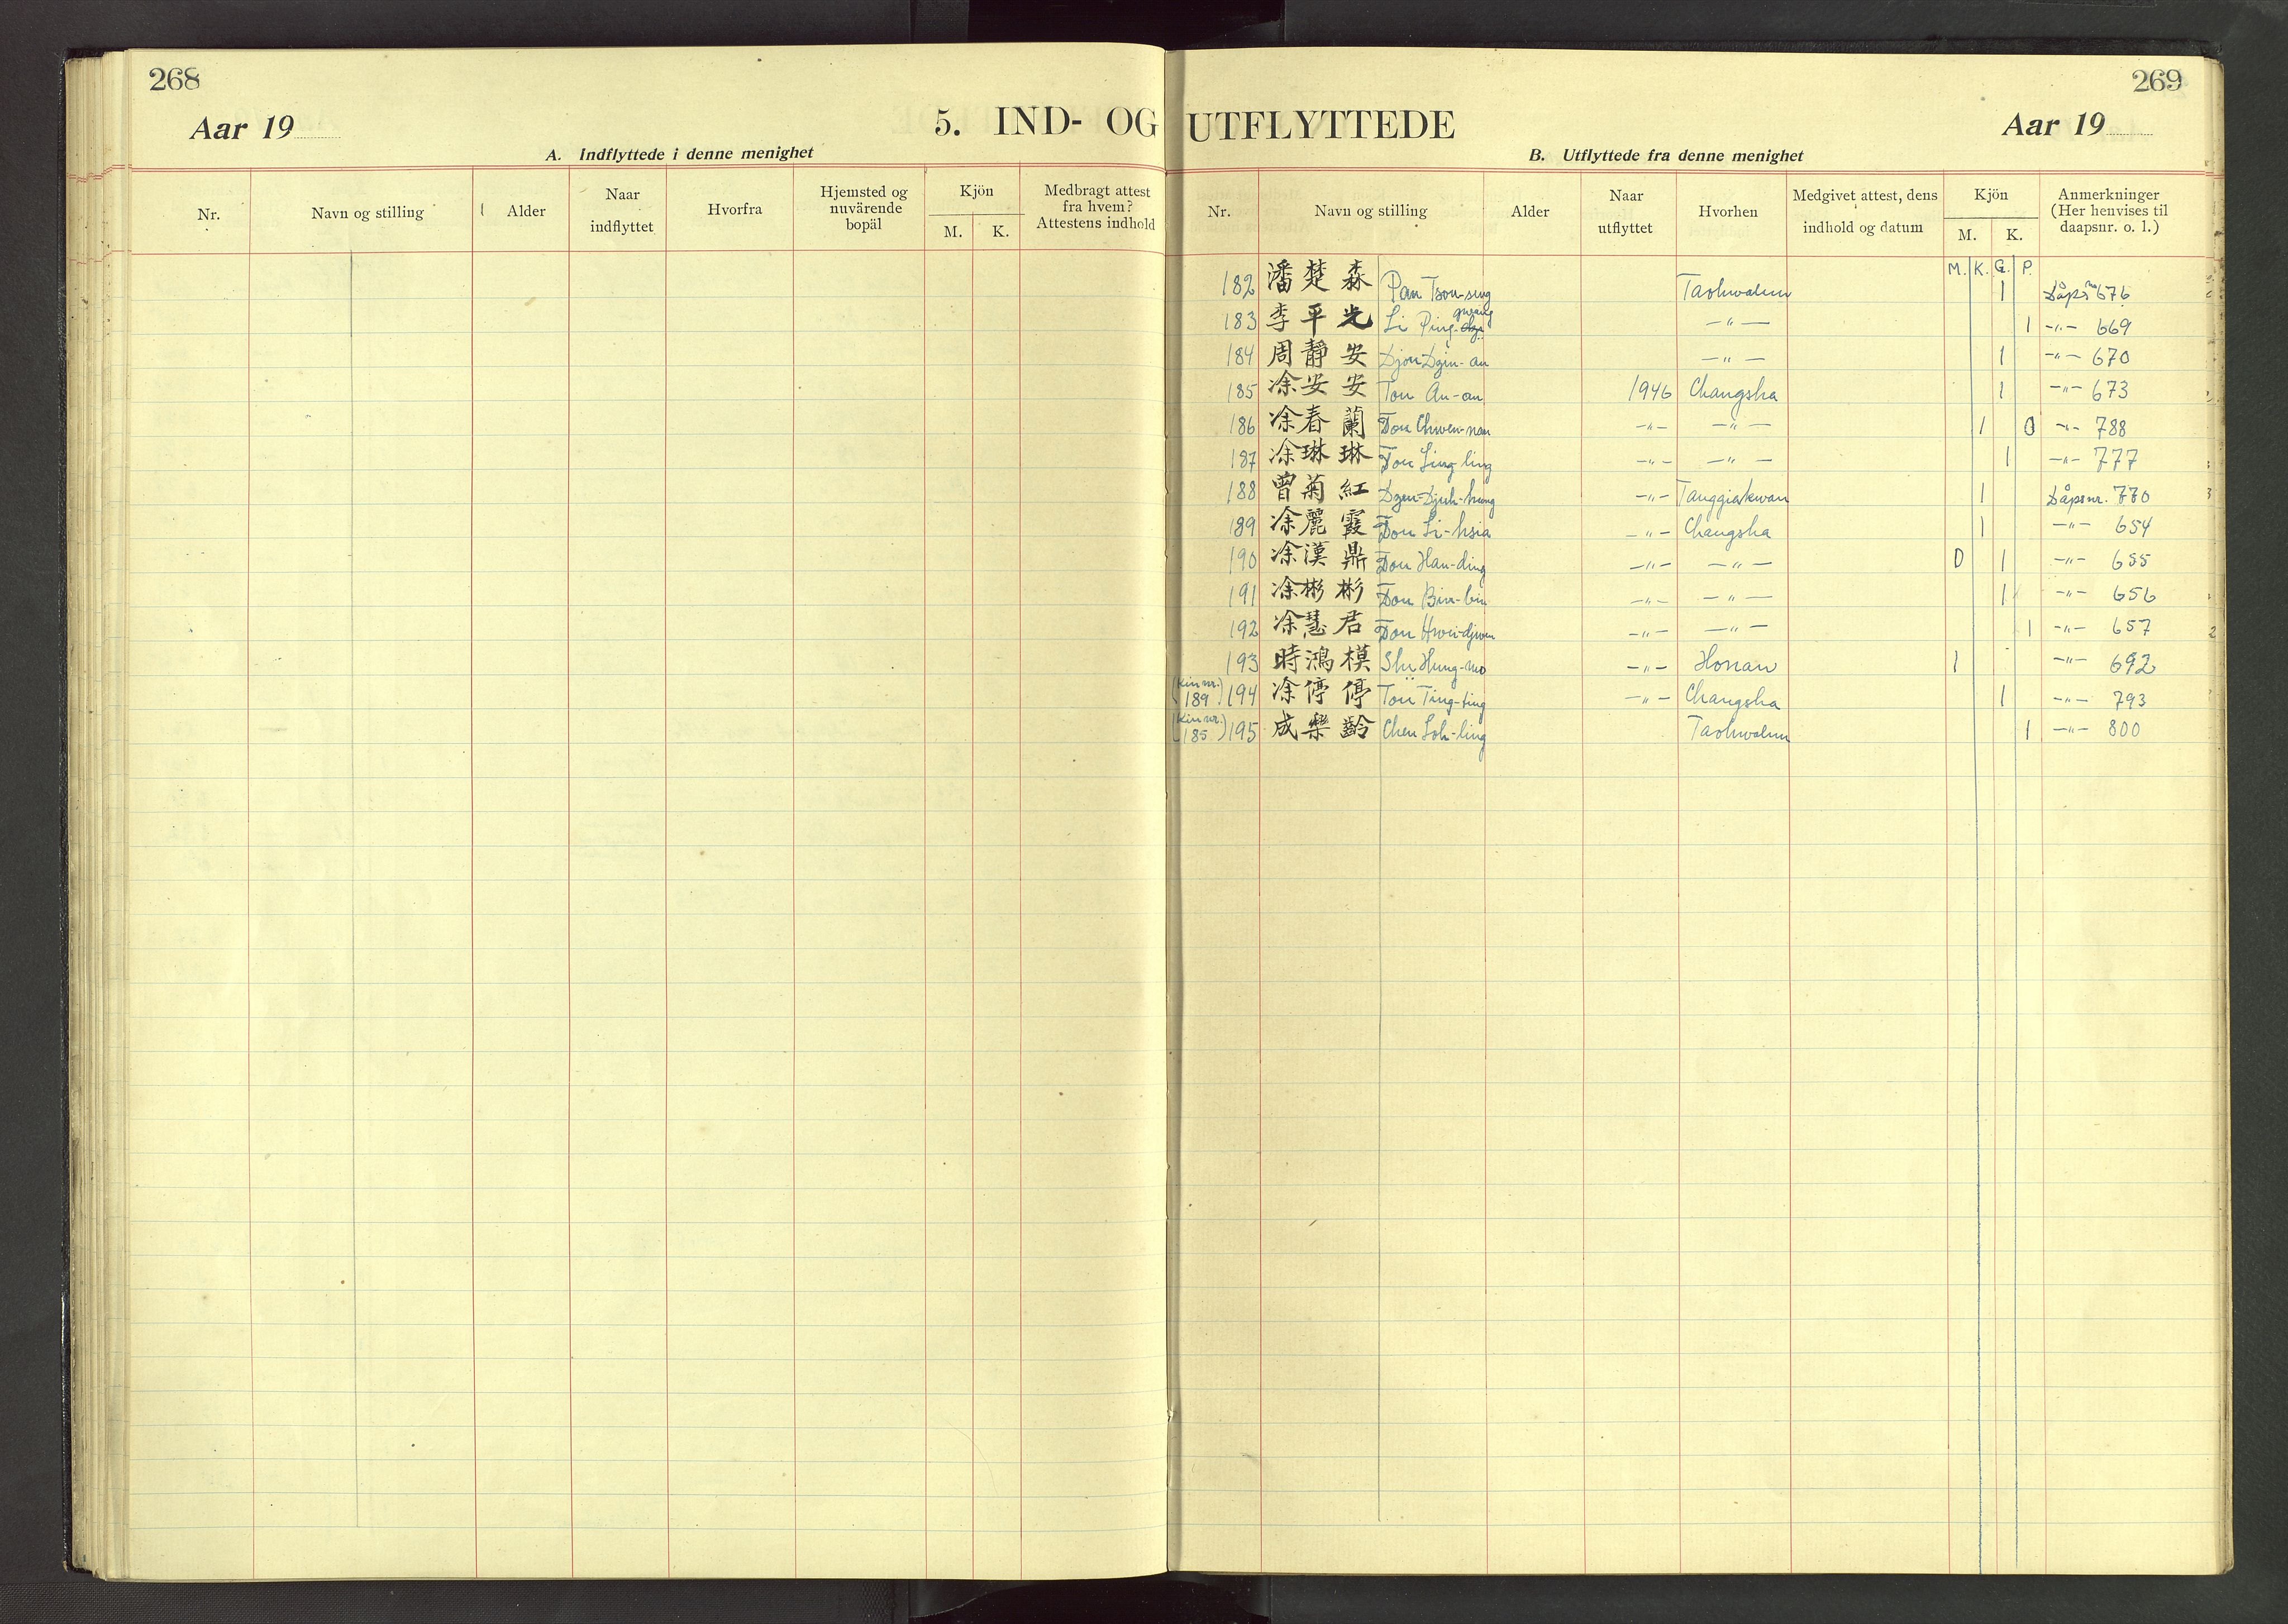 268
Aar 19
5. IND- OG
A. Indflyttede i denne menighet
Nr. Navn og stilling Alder Naar indflyttet Hvorfra Hjemsted og nuværende bopäl Kjön M. K. Medbragt attest fra hvem? Attestens indhold
269
UTFLYTTEDE
Aar 19
B. Utflyttede fra denne menighet
Nr. Navn og stilling Alder Naar utflyttet Hvorhen Medgivet attest, dens indhold og datum Kjön M. K. Anmerkninger (Her henvises til daapsnr. o. l.)
M. K. G. P.
182 潘楚森 Pan Tsou-seng Taohwalun 1 Dåpsnr 676
183 李平光 Li Ping-gwang -"- 1 -"- 669
184 周靜安 Djou Dzin-an -"- 1 -"- 670
185 凃安安 Tou An-an 1946 Changsha 1 -"- 673
186 凃春蘭 Tou Chwen-nan -"- -"- 1 0 -"- 788
187 凃琳琳 Tou Ling-ling -"- -"- 1 -"- 777
188 曾菊紅 Dzen-Djuh-hung -"- Tanggiakwan 1 Dåpsnr. 770
189 凃麗霞 Tou Li-hsia -"- Changsha 1 -"- 654
190 凃漢鼎 Tou Han-ding -"- -"- 0 1 -"- 655
191 凃彬彬 Tou Bin-bin -"- -"- 1 -"- 656
192 凃慧君 Tou Hwei-djwen -"- -"- 1 -"- 657
193 時鴻模 Shï Hung-mo -"- Honan 1 -"- 692
(Kin nr. 189) 194 凃停停 Tou Ting-ting -"- Changsha 1 -"- 793
(Kin nr. 185) 195 成樂齡 Chen Loh-ling Taohwalun 1 -"- 800